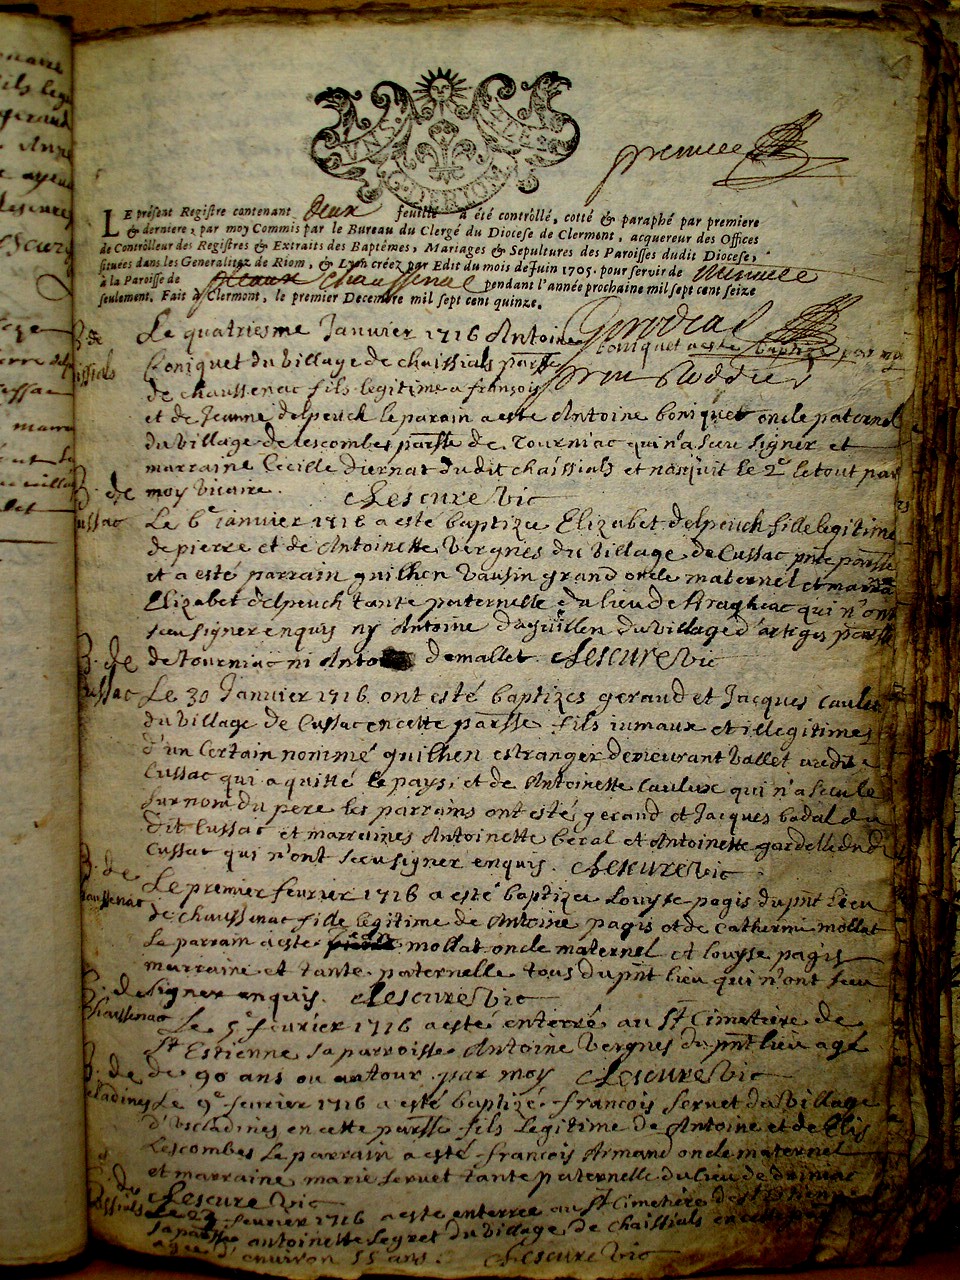 premiere
LE présent Registre contenant deux feuille a été contrôlé, cotté & paraphé par premiere
& derniere, par moy Commis par le Bureau du Clergé du Diocese de Clermont, acquereur des Offices
de Contrôlleur des Registres & Extraits des Baptêmes, Mariages & Sepultures des Paroisses dudit Diocese,
situées dans les Generalitez de Riom, & Lyon créez par Edit du mois de Juin 1705. pour servir de minutte
à la Paroisse de Chaussenac pendant l'année prochaine mil sept cent seize
seulement. Fait à Clermont, le premier Decembre mil sept cent quinze.
Le quatriesme Janvier 1716 Antoine boniquet a esté baptizé par moy
boniquet du village de chaissials parsse
de chaussenac fils legitime a françois
et de Jeanne delpeuch le parain a esté Antoine boniquet oncle paternel
du village de lescombes parsse de Tourniac qui n'a sceu signer et
marraine Cecille diernat dudit chaissials et nasquit le 2e le tout par
moy vicaire. Lescure vic
B. de
ussac
Le 6e janvier 1716 a esté baptizée Elizabet delpeuch fille legitime
de pierre et de Antoinette Vergnes du village de Cussac pnte parsse
et a esté parrain guilhen grand oncle maternel et marra
Elizabet delpeuch tante paternelle du lieu de qui n'ont
sceu signer enquis ny Antoine du village d'artiges parsse
de tourniac ni demallet. Lescure vic
B. de
ussac
Le 30 Janvier 1716 ont esté baptizes geraud et Jacques
du village de Cussac en cette parsse fils iumaux et illegitimes
d'un certain nommé guilhen estranger demeurant vallet audit
Cussac qui a quitté le pays, et de Antoinette qui n'a sceu le
surnom du pere les parrains ont esté geraud et Jacques badal du
dit Cussac et marraines Antoinette beral et Antoinette gardelle dudit
Cussac qui n'ont sceu signer enquis. Lescure vic
B. de
aussenac
Le premier fevrier 1716 a esté baptizée Louyse pagis du pnt lieu
de chaussenac fille legitime de Antoine pagis et de Catherine mollat
Le parrain a esté mollat oncle maternel et louyse pagis
marraine et tante paternelle tous du pnt lieu qui n'ont sceu
signer enquis. Lescure vic
Chaussenac
Le 5e fevrier 1716 a esté enterré au St Cimetiere de
St Estienne sa parroisse Antoine Vergnes du pnt lieu agé
de 90 ans ou autour par moy Lescure vic
B. de
Le 9e fevrier 1716 a esté baptizé françois servet du village
d'escladines en cette parsse fils legitime de Antoine et de Elis
Lescombes le parrain a esté françois Armand oncle maternel
et marraine marie servet tante paternelle du lieu de
Lescure vic
fevrier 1716 a esté enterrée au St Cimetiere de St Estienne
sa parsse antoinette du village de chaissials
agée d'environ 55 ans. Lescure vic